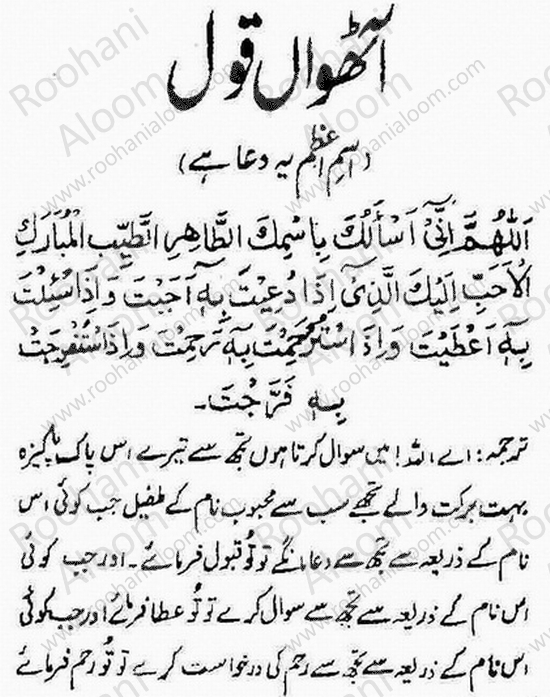 آٹھواں قول
(اسمِ اعظم یہ دعا ہے)
اَللّٰهُمَّ اِنِّیْ اَسْأَلُكَ بِاسْمِكَ الطَّاهِرِ الطَّیِّبِ الْمُبَارَكِ
الْاَحَبِّ اِلَیْكَ الَّذِیْ اِذَا دُعِیْتَ بِهٖ اَجَبْتَ وَاِذَا سُئِلْتَ
بِهٖ اَعْطَیْتَ وَاِذَا اسْتُرْحِمْتَ بِهٖ رَحِمْتَ وَاِذَا اسْتُفْرِجْتَ
بِهٖ فَرَّجْتَ۔
ترجمہ: اے اللہ! میں سوال کرتا ہوں تجھ سے تیرے اس پاک پاکیزہ
بہت برکت والے تجھے سب سے محبوب نام کے طفیل جب کوئی اس
نام کے ذریعہ سے تجھ سے دعا مانگے تو تُو قبول فرمائے۔ اور جب کوئی
اس نام کے ذریعہ سے تجھ سے سوال کرے تو تُو عطا فرمائے اور جب کوئی
اس نام کے ذریعہ سے تجھ سے رحم کی درخواست کرے تو تُو رحم فرمائے
Roohani Aloom
www.roohanialoom.com